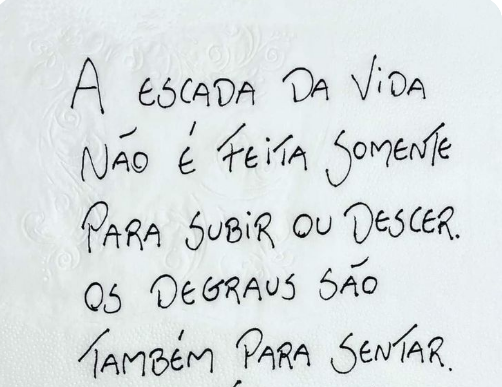 A ESCADA DA ViDA
NÃO É FEiTA SOMENTE
PARA SUBiR OU DESCER.
OS DEGRAUS SÃO
TAMBÉM PARA SENTAR.